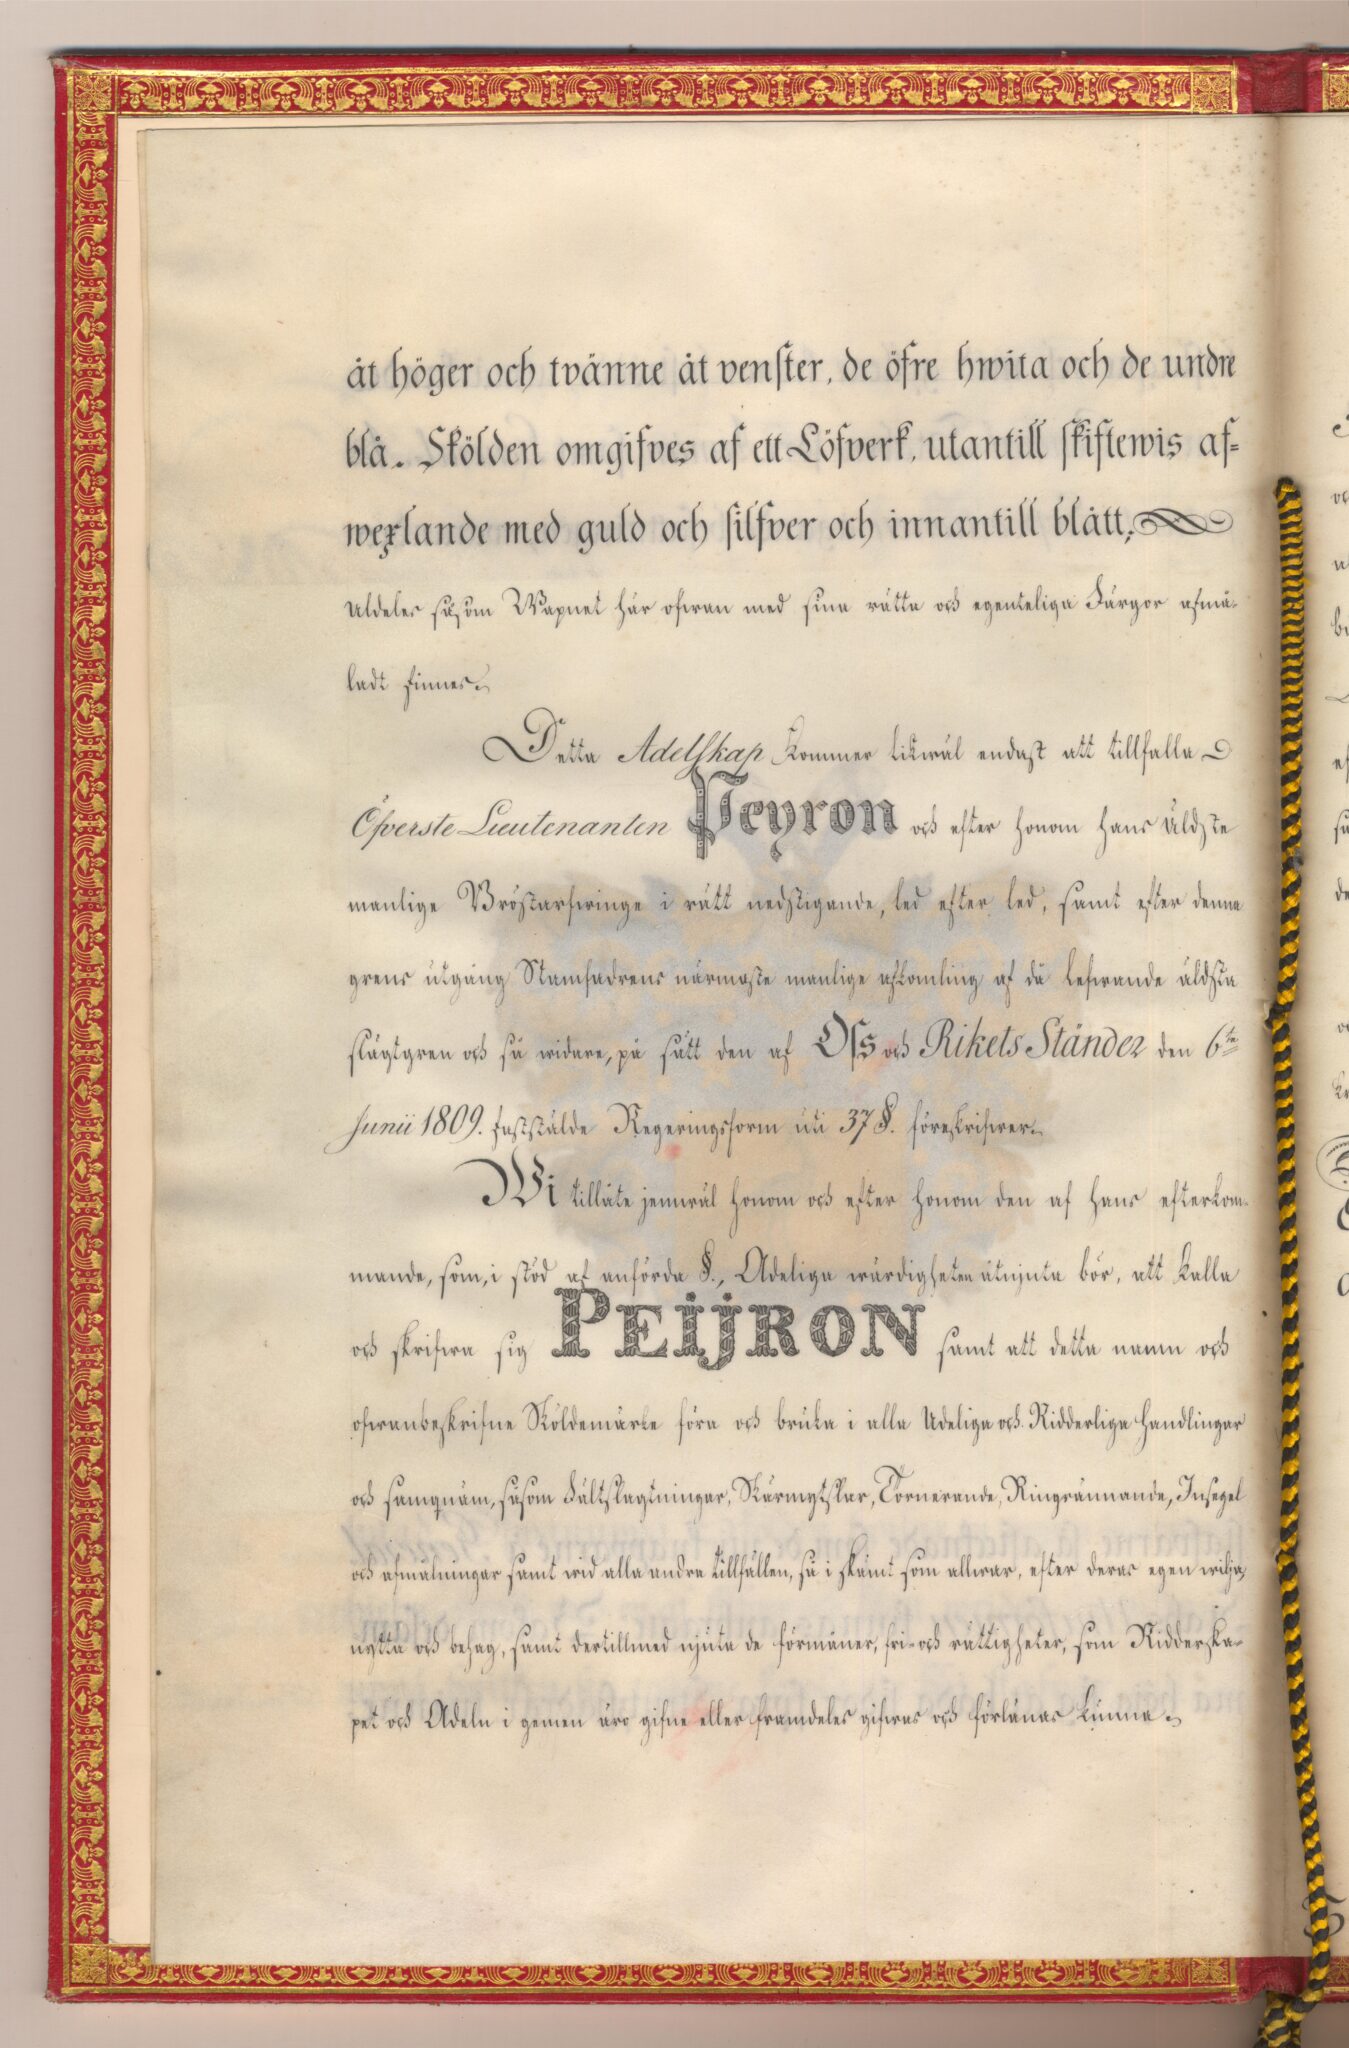 åt höger och tvänne åt venster, de öfre hwita och de undre
blå. Skölden omgifves af ett Löfverk, utantill skiftewis af-
wexlande med guld och silfver och innantill blått;
Aldeles såsom Wapnet här ofwan med sina rätta och egenteliga Färgor afmå-
ladt finnes.
Detta Adelskap kommer likwäl endast att tillfalla
Öfverste Lieutenanten Peyron och efter honom hans äldste
manlige Bröstarfwinge i rätt nedstigande, led efter led, samt efter denna
grens utgång Stamfadrens närmaste manlige afkomling af då lefwande äldsta
slägtgren och så widare, på sätt den af Oss och Rikets Ständer den 6te
Junii 1809. faststälde Regeringsform uti 37 §. föreskrifwer.
Wi tillåte jemwäl honom och efter honom den af hans efterkom-
mande, som, i stöd af anförda §., Adeliga wärdigheten åtnjuta bör, att kalla
och skrifwa sig PEIJRON samt att detta namn och
ofwanbeskrifne Sköldemärke föra och bruka i alla Adeliga och Ridderliga Handlingar
och samqväm, såsom Fältslagtningar, Skärmytslar, Tornerande, Ringrännande, Insegel
och afmålningar samt wid alla andra tillfällen, så i skämt som allwar, efter deras egen wilja,
nytta och behag, samt dertillmed njuta de förmåner, fri- och rättigheter, som Ridderska-
pet och Adeln i gemen äro gifne eller framdeles gifwas och förlänas kunna.